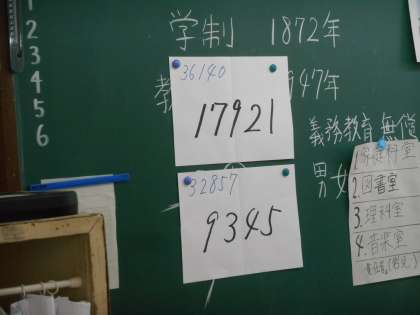 1
2
3
4
5
6
学制 1872年
教 947年
義務教育 無償
男女
36140
17921
32857
9345
1.家庭科室
2.図書室
3.理科室
4.音楽室